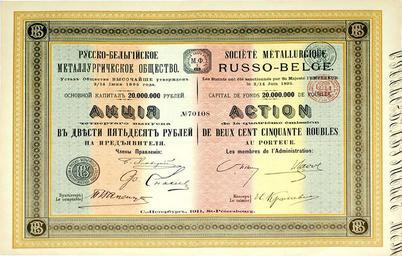 РУССКО-БЕЛЬГІЙСКОЕ
МЕТАЛЛУРГИЧЕСКОЕ ОБЩЕСТВО.
Уставъ Общества ВЫСОЧАЙШЕ утвержденъ
2/14 Іюня 1895 года.
ОСНОВНОЙ КАПИТАЛЪ 20.000.000 РУБЛЕЙ.
АКЦІЯ
четвертаго выпуска
ВЪ ДВѢСТИ ПЯТЬДЕСЯТЪ РУБЛЕЙ
НА ПРЕДЪЯВИТЕЛЯ.
Члены Правленія:
Бухгалтеръ:
Le comptable:
М.Ф.
№70108
SOCIÉTÉ METALLURGIQUE
RUSSO-BELGE
Les Statuts ont été sanctionnés par Sa Majesté l'EMPEREUR
le 2/14 Juin 1895.
CAPITAL DE FONDS 20.000.000 DE ROUBLES.
ACTION
de la quatrième émission
DE DEUX CENT CINQUANTE ROUBLES
AU PORTEUR.
Les membres de l'Administration:
Кассиръ:
Le caissier:
С.-Петербургъ, 1911, St-Pétersbourg.